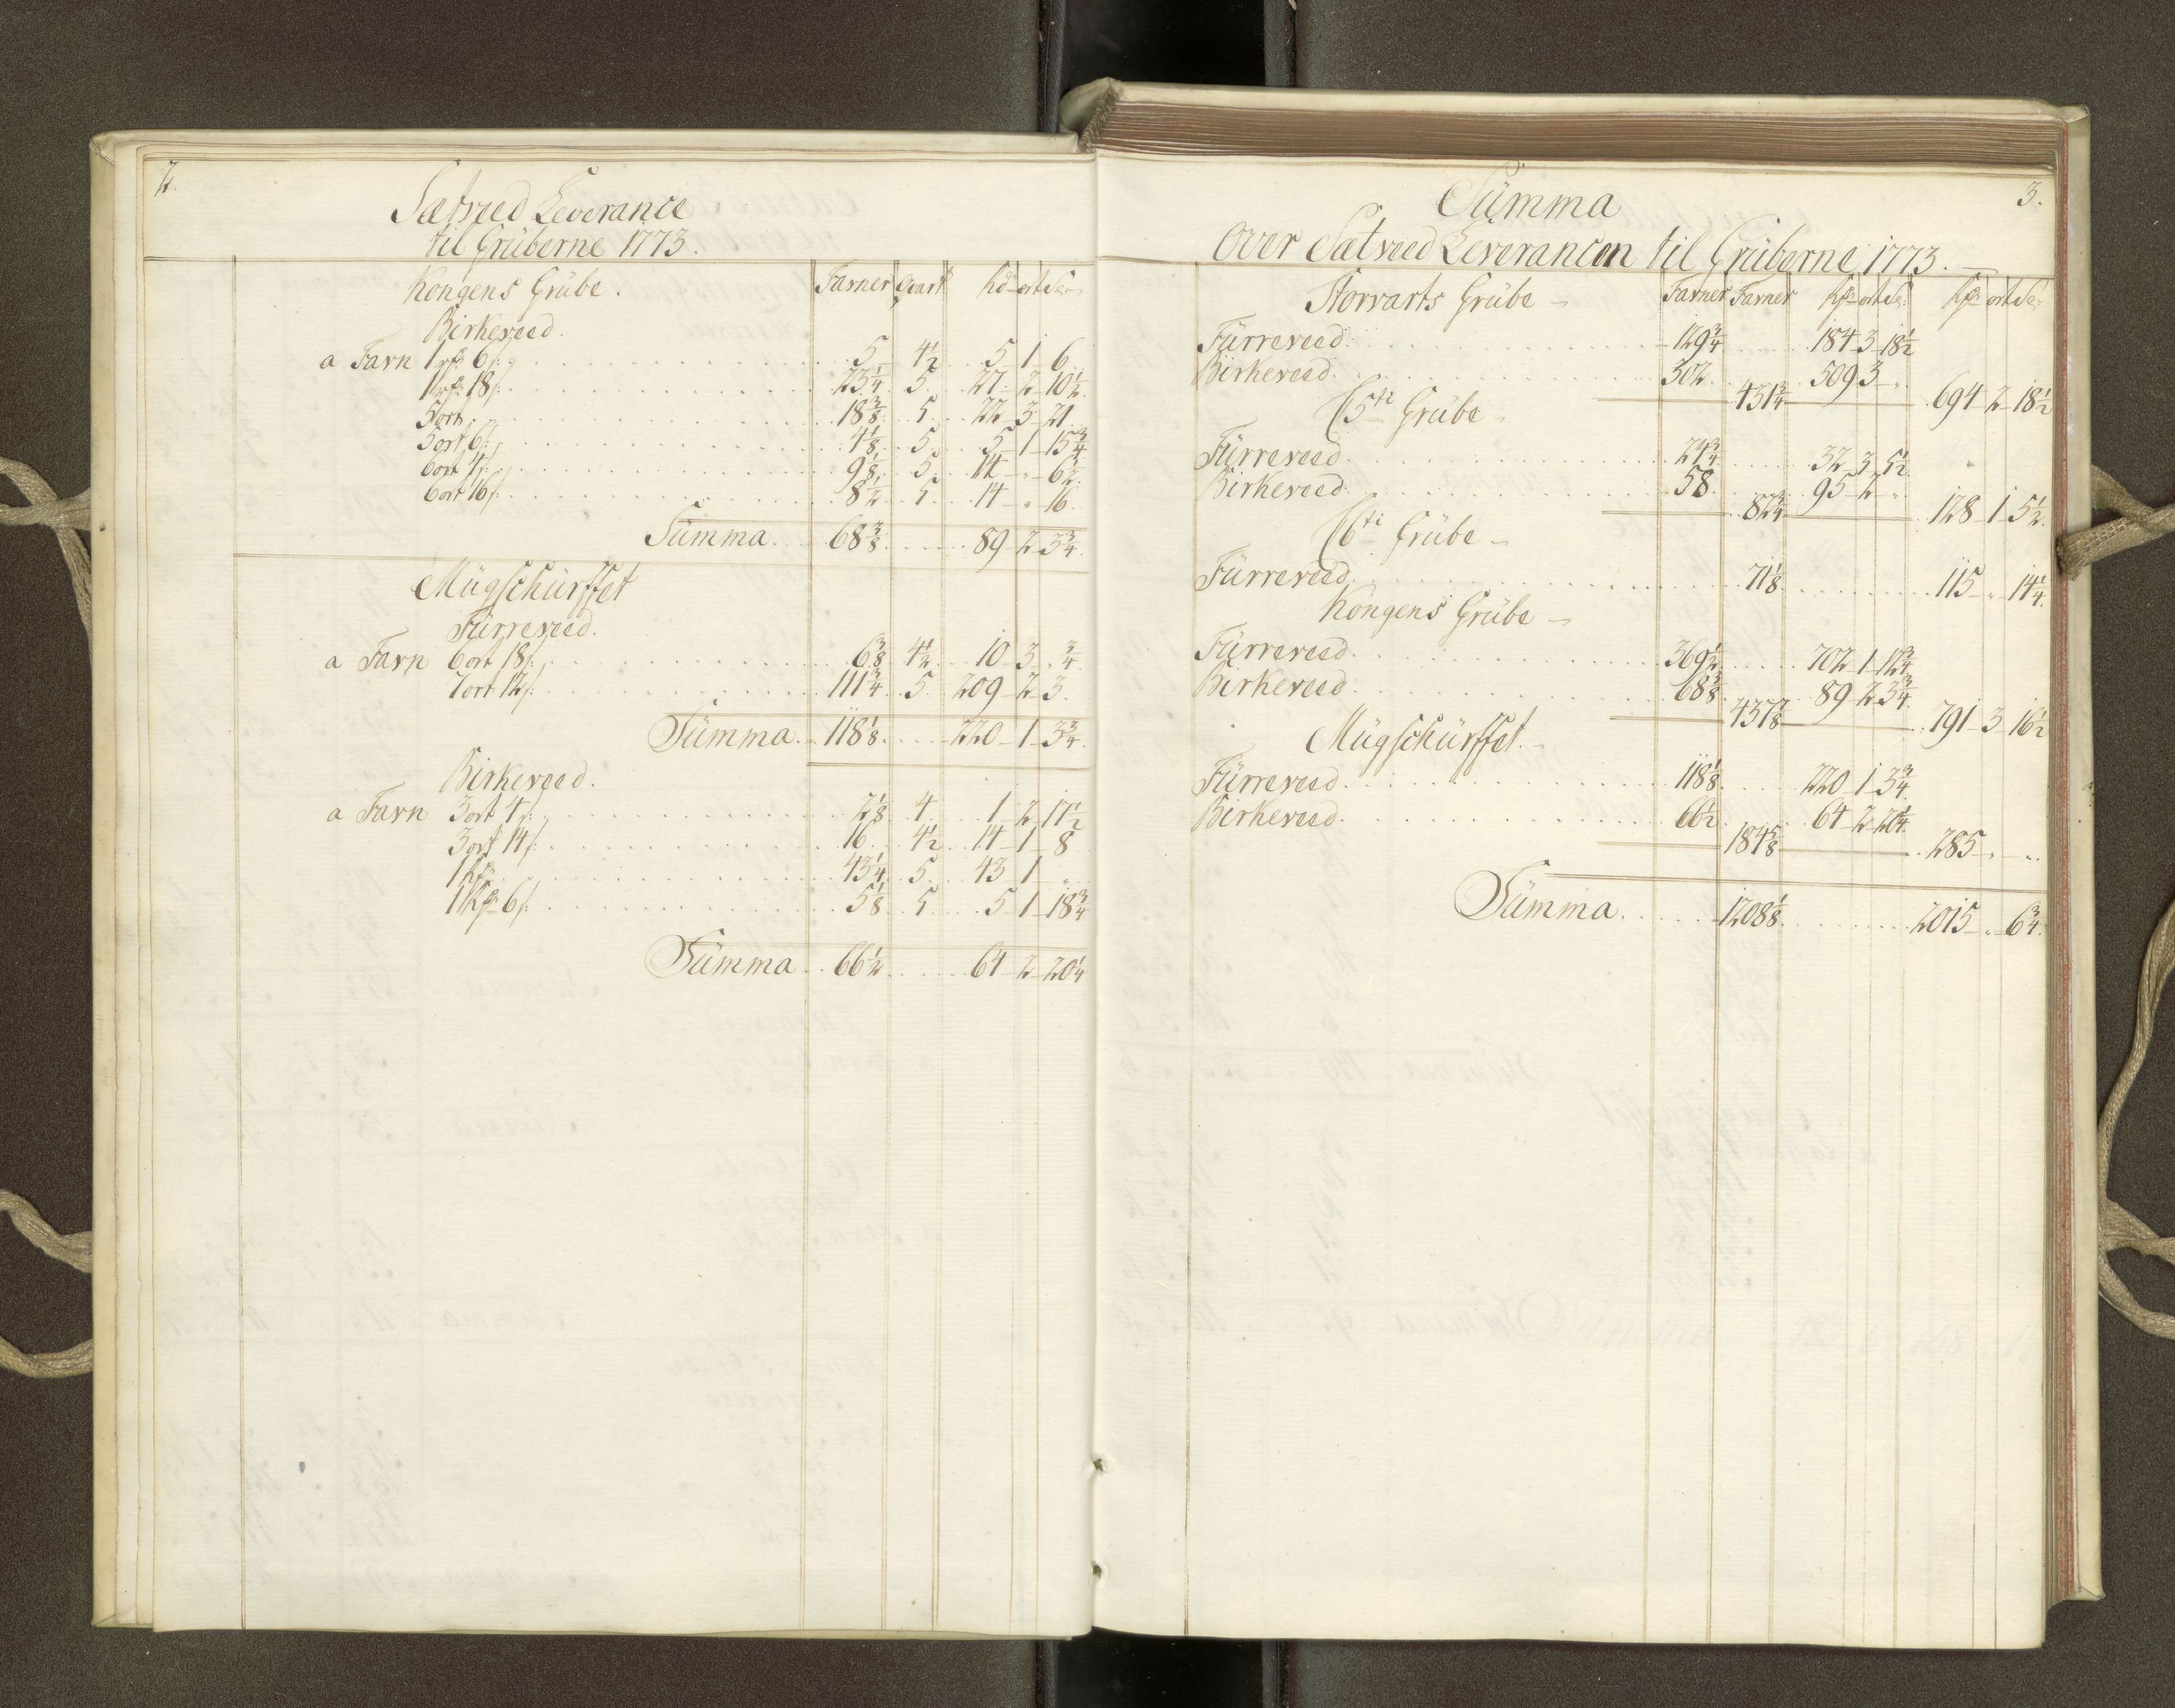 2.
Sætveed Leverance
til Grüberne 1773.
Kongens Grübe. Farner Qvart Rd ort s:
Birkeveed.
a Farn 1 rd 6 s: 5 4 1/2 5 1 6
1 rd 18 s: 23 1/4 5 27 2 10 1/2
5 ort 18 3/8 5 22 3 21
5 ort 6 s: 4 1/8 5 5 1 15 3/4
6 ort 4 s: 9 1/8 5 14 " 6 1/2
6 ort 16 s: 8 1/2 5 14 " 16
Sümma 68 3/8 89 2 3 3/4
Mügschürffet
Fürreveed.
a Farn 6 ort 18 s: 6 3/8 4 1/2 10 3 3/4
7 ort 12 s: 111 3/4 5 209 2 3
Sümma 118 1/8 220 1 3 3/4
Birkeveed.
a Farn 3 ort 4 s: 2 1/8 4 1 2 17 1/2
3 ort 14 s: 16 4 1/2 14 1 8
1 Rd 43 1/4 5 43 1 "
1 Rd 6 s: 5 1/8 5 5 1 18 3/4
Sümma 66 1/2 64 2 20 1/4
3.
Sümma
Over Sætveed Leverancen til Grüberne 1773.
Storvarts Grübe Farner Farner Rd ort s: Rd ort s:
Fürreveed 129 3/4 184 3 18 1/2
Birkeveed 302 509 3 "
431 3/4 694 2 18 1/2
C 5te Grübe
Fürreveed 24 3/4 32 3 5 1/2
Birkeveed 58 95 2 "
82 3/4 128 1 5 1/2
C 6te Grübe
Fürreveed 71 1/8 115 " 14 1/4
Kongens Grübe
Fürreveed 369 1/2 702 1 12 3/4
Birkeveed 68 3/8 89 2 3 3/4
437 7/8 791 3 16 1/2
Mügschürffet
Fürreveed 118 1/8 220 1 3 3/4
Birkeveed 66 1/2 64 2 20 1/4
184 5/8 285 " "
Sümma 1208 1/8 2015 " 6 3/4